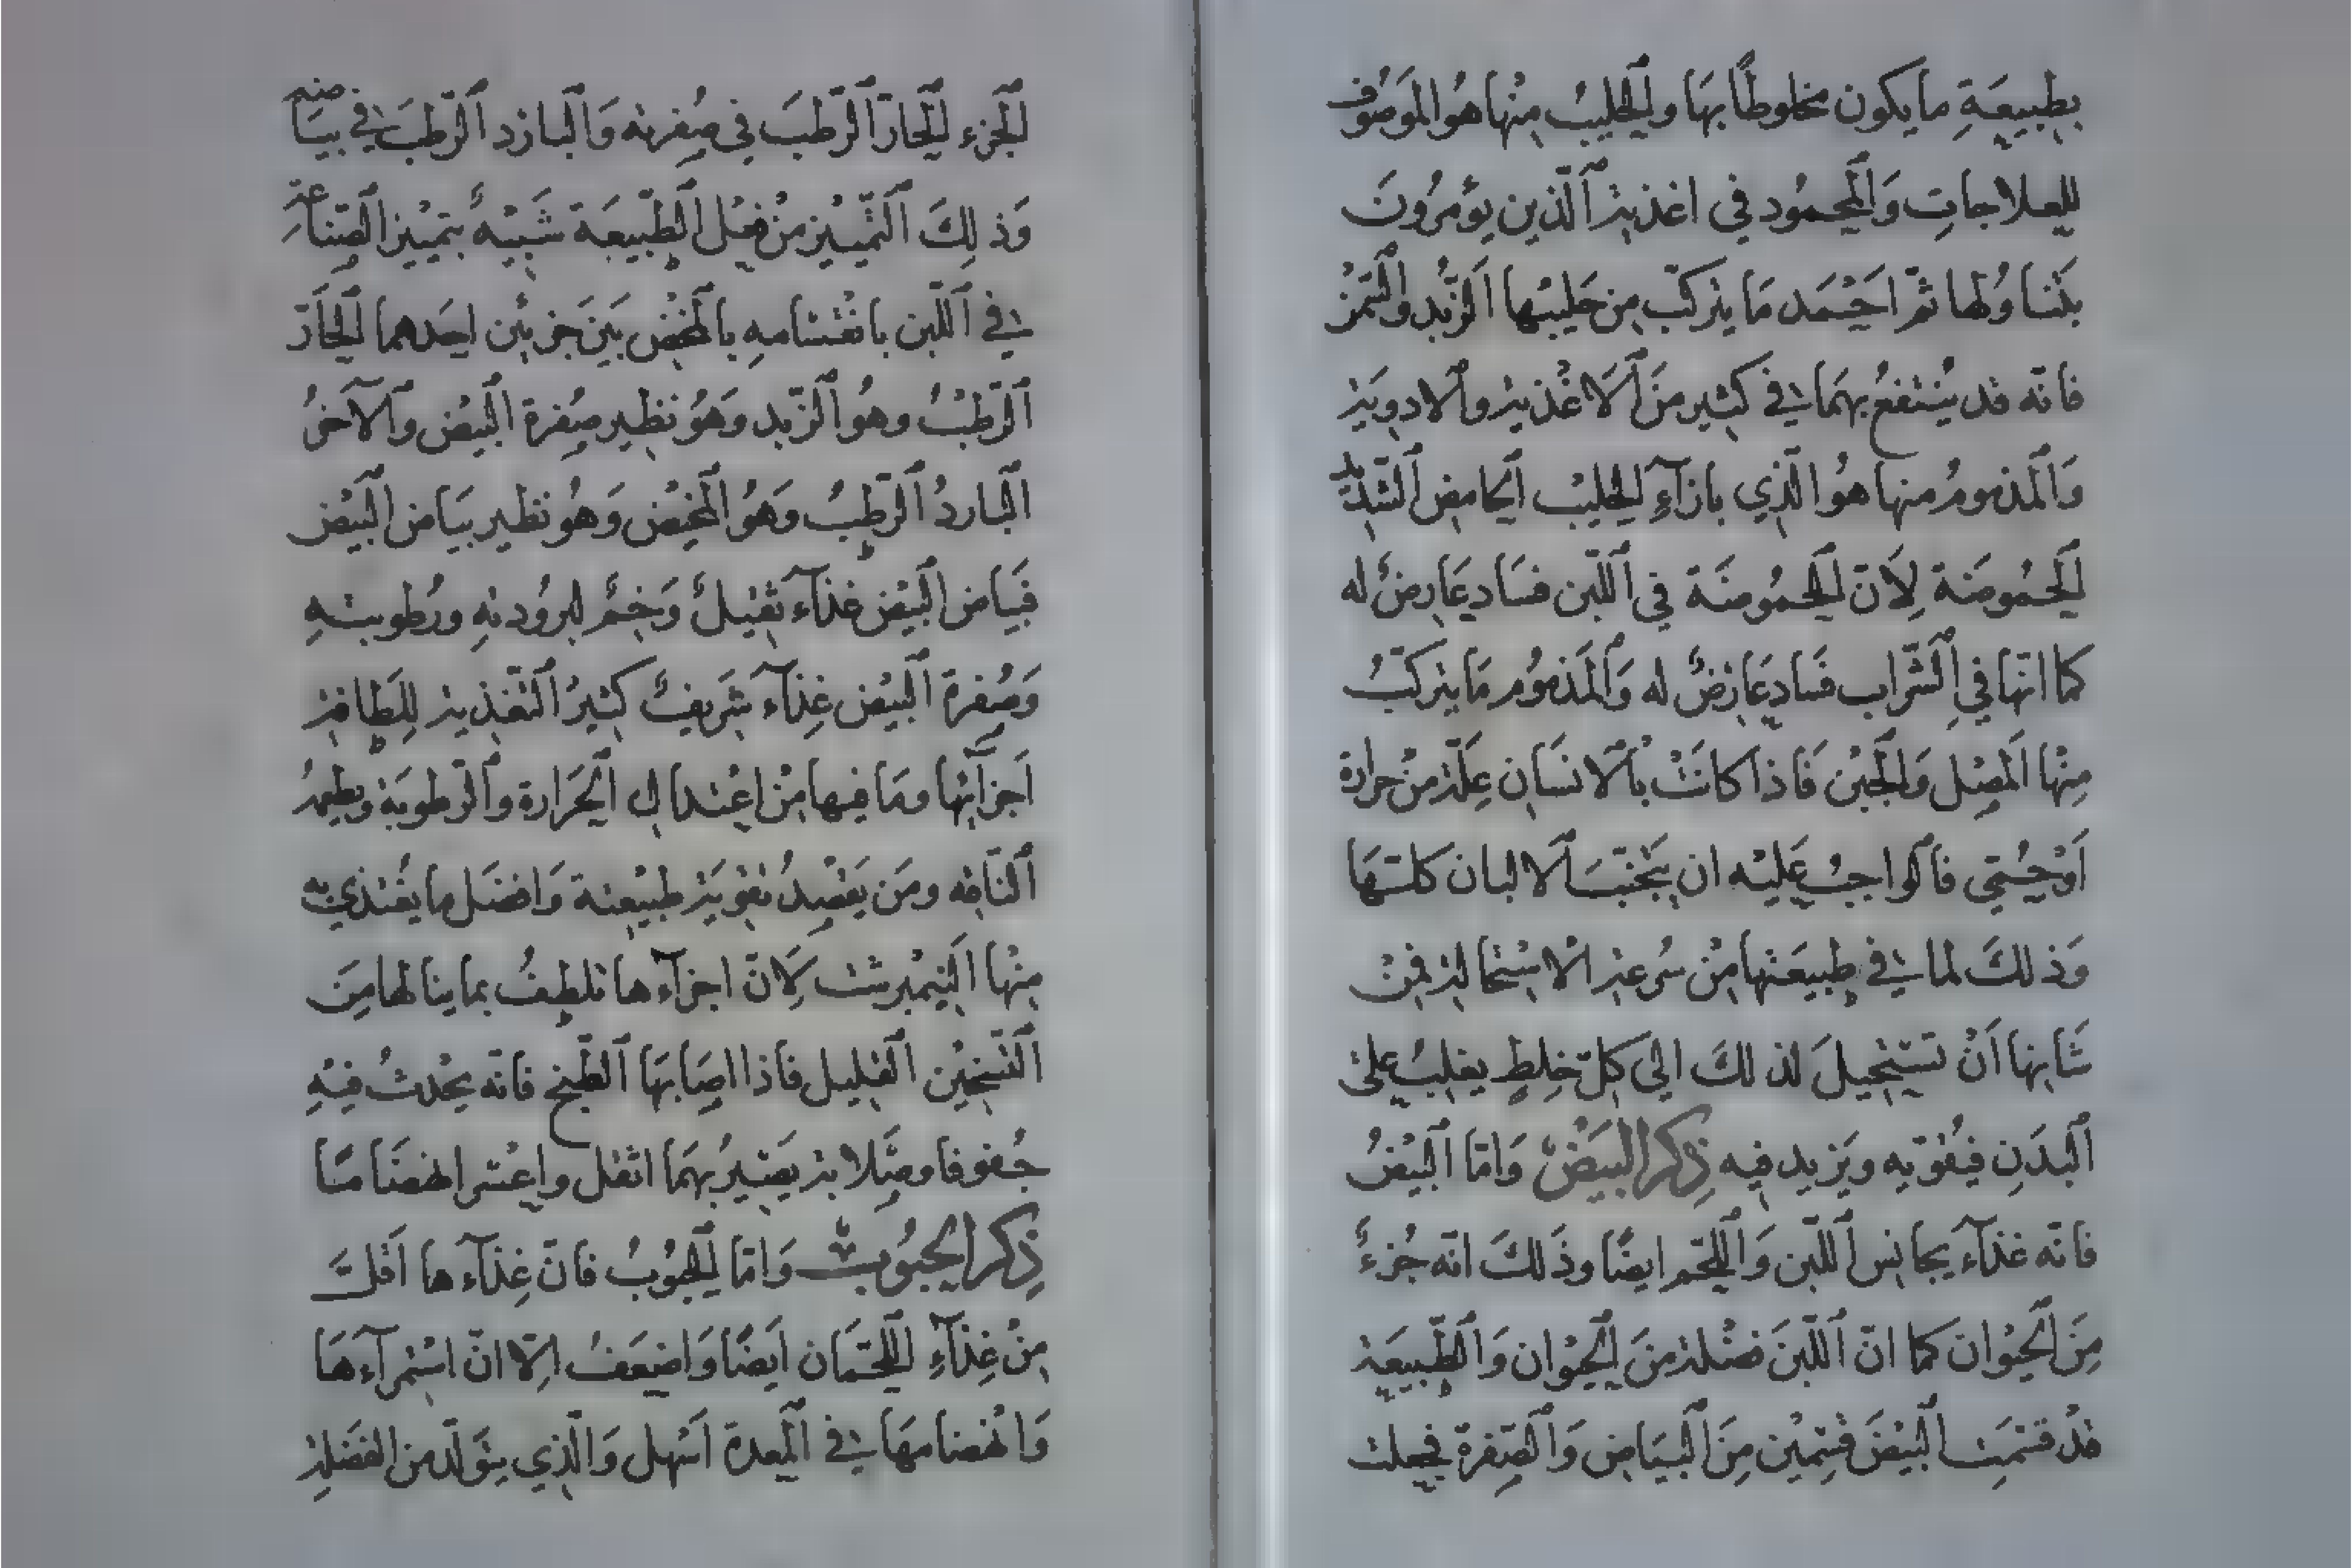 بطبيعَةِ ما يكون مخلوطًا بها والحليبُ منْها هوُ الموَصُوف
للعلاجاتِ وَالمحمُود في اغذيةِ الّذين يؤمرُونَ
بتناوُلها ثمّ احْمَد مَا يتركّب مِن حَليبْها الزُّبد والتمْر
فانّه قد يُنتفعُ بهَما في كثير منَ الاَغْذية والادوية
وَالمذمومُ منها هوُ الّذي بازآءِ الحليبْ الحامِض الشّديد
الحمُوضَة لِاَنّ الحمُوضَة في اللّبن فسَاد عَارِضٌ له
كما انّها فيِ الشّراب فسَاد عَارِضٌ له وَالمَذمُوم مَا يتركّبُ
مِنْها المَصِل وَالجبْن فَاذا كانَتْ بالانسَان عِلّة منْ حرارة
اَوْ حُمّى فالواجبُ عَليْه ان يَجْتنبَ الالبان كلّهَا
وَذلكَ لما في طبيعَتها منْ سُرعة الاسْتحالة فمِنْ
شَانِها اَنْ تستحِيلَ لذلكَ الىَ كلّ خِلطٍ يغلِبُ على
البَدَنِ فيُقوّيه ويَزيد فيه ذِكر البَيَضْ وَامّا البَيْضُ
فانّه غذآء يجانِس اللّبن وَاللّحْم ايضًا وذَلكَ انّه جُزءٌ
مِنَ الحيْوان كما انّ اللّبنَ فضْلة منَ الحيْوان وَالطّبيعَة
قدْ قسَمَت البيْضَ قسْمِيْن مِنَ البيَاض وَالصّفرة فجعلت
الجزء الحارّ الرّطبَ في صُفرته وَالبارد الرّطبَ في بيَاضه
وَذلِكَ التّمييز منْ فِعْل الطّبيعَة شَبيْهٌ بتمييْز الصّناعَة
في اللّبن بانقسَامهِ بالمَخْض بَينَ جزئين احَدهما الحَارّ
الرّطبُ وهوُ الزّبد وَهوُ نظير صِفرة البَيْض والآخرُ
البَاردُ الرّطِبُ وهَوُ المخيْض وَهوُ نظير بيَاض البَيْض
فبَياض البَيْض غذآء ثقيلٌ وَخِمٌ لبروُدتهِ ورُطوبتهِ
وَصُفرة البَيْض غِذآء شَريفٌ كثيرُ التّغذية لِلَطافة
اَجزآئها ومَا فيها منْ اعْتدال الحَرَارة والرّطوبَة ويطعمُ
النّاقه ومَن يقْصِدُ تقويَة طبيْعته وَافضَل ما يغْتذي به
منْها النّيمْبرشت لِاَنّ اجزآءها تلطفُ بما ينالها مِنَ
التّسْخين القليل فاذا اصَابهَا الطّبخ فانّه يحْدثُ فيْهِ
جُفوفا وصَلابة يصَيرُ بهَما اثقل واعْسر انهضَامًا
ذِكر الحبوُبْ وَامّا الحبوُبُ فانّ غِذآءها اَقلَّ
منْ غِذآءِ اللّحْمَان اَيضًا وَاضعَفُ الّا انّ اسْتمرآءهَا
وَانْهضامهَا في المَعدة اَسْهل وَالّذي يتوَلّد من الفضَلة